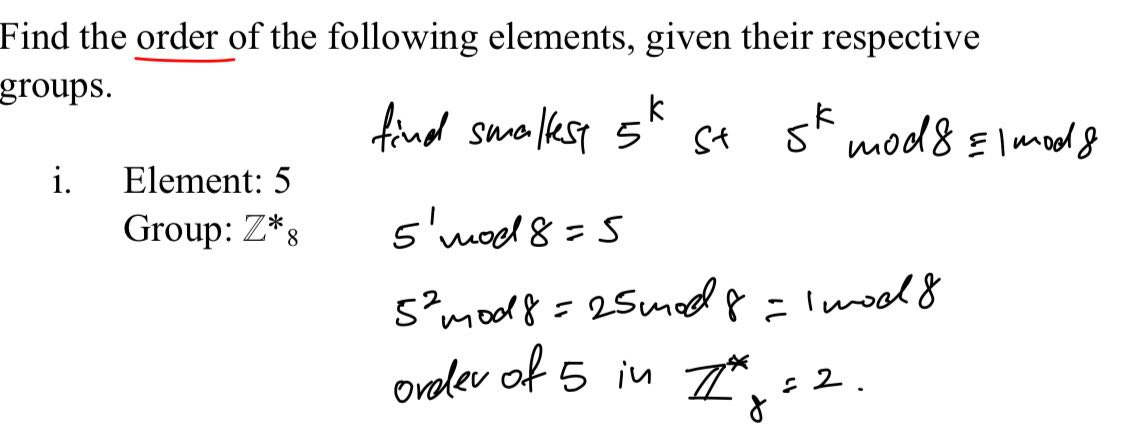 Find the order of the following elements, given their respective
groups.
find smallest 5^k st 5^k mod 8 ≡ 1 mod 8
i. Element: 5
Group: ℤ*₈
5^1 mod 8 = 5
5^2 mod 8 = 25 mod 8 = 1 mod 8
order of 5 in ℤ*₈ = 2.